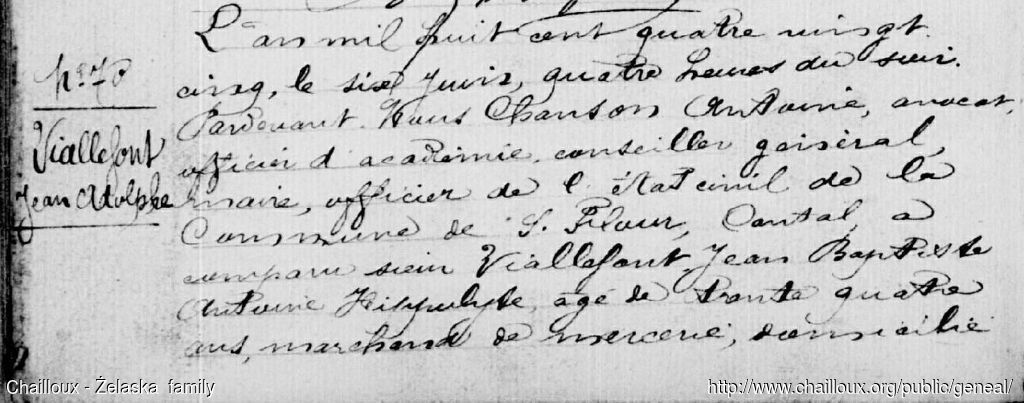 L'an mil huit cent quatre vingt
cinq, le six juin, quatre heures du soir.
Pardevant Nous Chanson Antoine, avocat,
officier d'académie, conseiller général,
maire, officier de l'état civil de la
Commune de St Flour, Cantal, a
comparu sieur Viallefont Jean Baptiste
Antoine Hippolyte, agé de trente quatre
ans, marchand de mercerie, domicilié
N° 70
Viallefont
Jean Adolphe
Chailloux - Želaska family
http://www.chailloux.org/public/geneal/